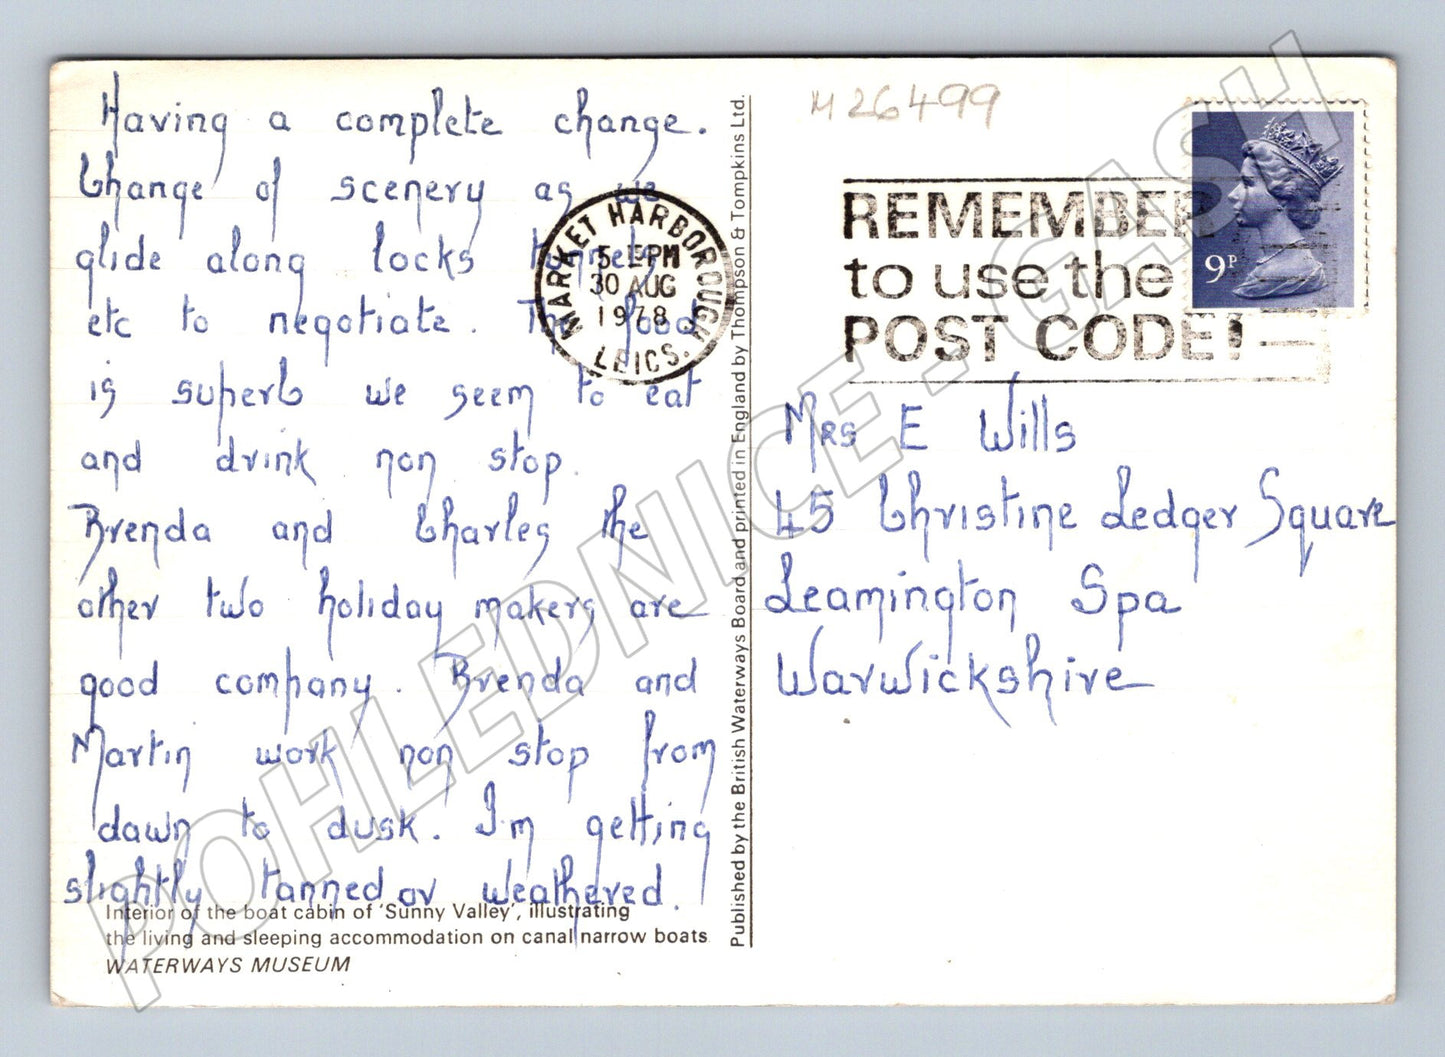 Having a complete change.
Change of scenery as we
glide along locks tunnels
etc to negotiate. The food
is superb we seem to eat
and drink non stop.
Brenda and Charles the
other two holiday makers are
good company. Brenda and
Martin work non stop from
dawn to dusk. I'm getting
slightly tanned or weathered.
Interior of the boat cabin of 'Sunny Valley', illustrating
the living and sleeping accommodation on canal narrow boats
WATERWAYS MUSEUM
Published by the British Waterways Board and printed in England by Thompson & Tompkins Ltd.
MARKET HARBOROUGH
5 15 PM
30 AUG
1978
LEICS.
M 26499
REMEMBER
to use the
POST CODE!
9P
Mrs E Wills
45 Christine Ledger Square
Leamington Spa
Warwickshire
POHLEDNICE - GASH